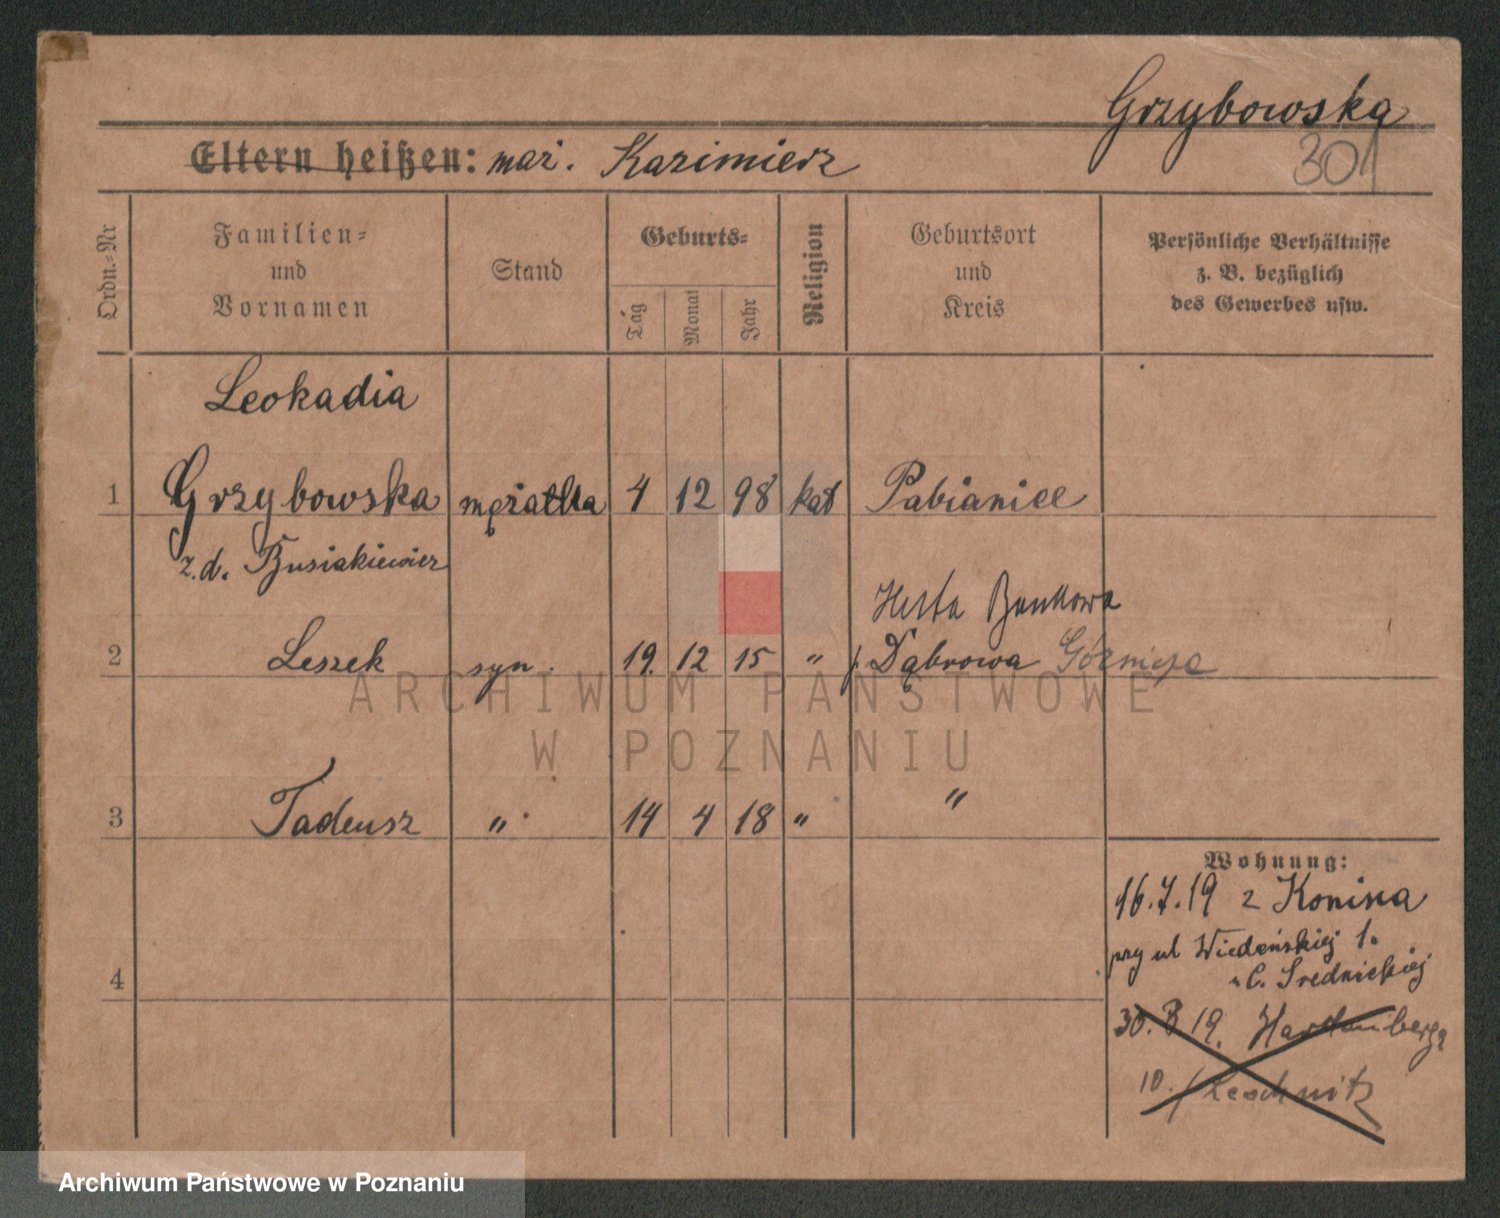 Grzybowska
301
Eltern heißen: mąż. Kazimierz
Ordn.-Nr
Familien-
und
Vornamen
Stand
Geburts-
Tag
Monat
Jahr
Religion
Geburtsort
und
Kreis
Persönliche Verhältnisse
z. B. bezüglich
des Gewerbes usw.
Leokadia
1 Grzybowska mężatka 4 12 98 kat Pabianice
z.d. Busiakiewicz
Huta Bankowa
2 Leszek syn. 19. 12 15 " Dąbrowa Górnicza
3 Tadeusz " 14 4 18 " "
Wohnung:
16.7.19 z Konina
przy ul Wiedeńskiej 1.
u C. Średnickiej
4
30. 8 19. Hardenberga
10. Leschnitz
ARCHIWUM PAŃSTWOWE
W POZNANIU
Archiwum Państwowe w Poznaniu